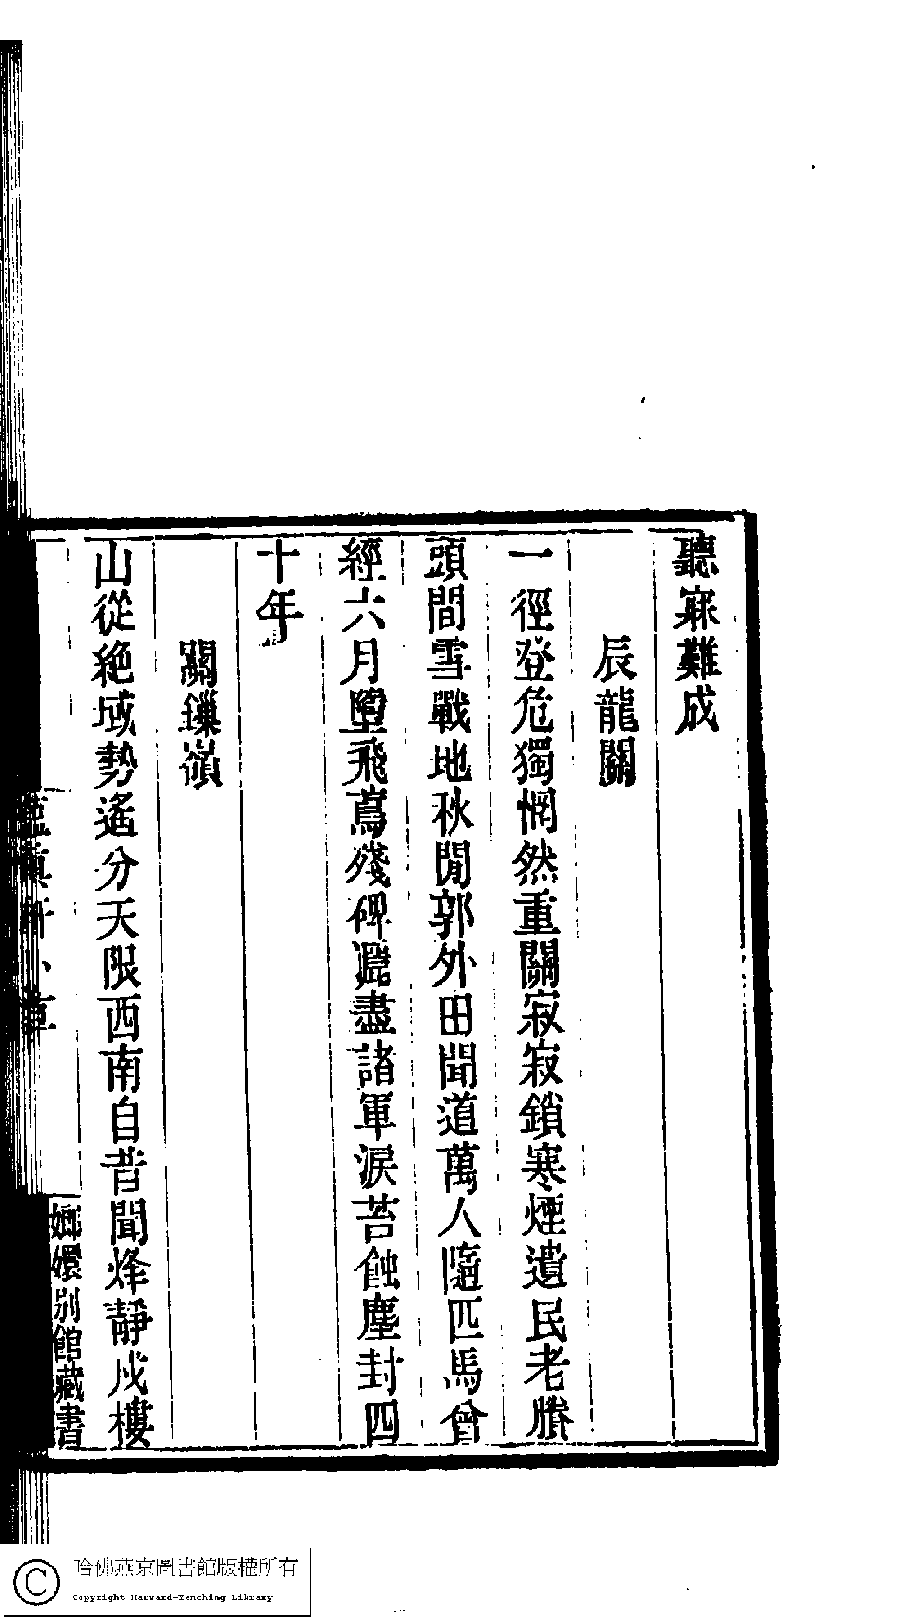 聽寐難成
辰龍關
一徑登危獨惘然重關寂寂鎖寒煙遺民老賸
頭間雪戰地秋閒郭外田聞道萬人隨匹馬曾
經六月墮飛鳶殘碑灑盡諸軍淚苔蝕塵封四
十年
關鏁嶺
山從絶域勢遙分天限西南自昔聞烽靜戍樓
嫏嬛別館藏書
哈佛燕京圖書館版權所有
Copyright Harvard-Yenching Library